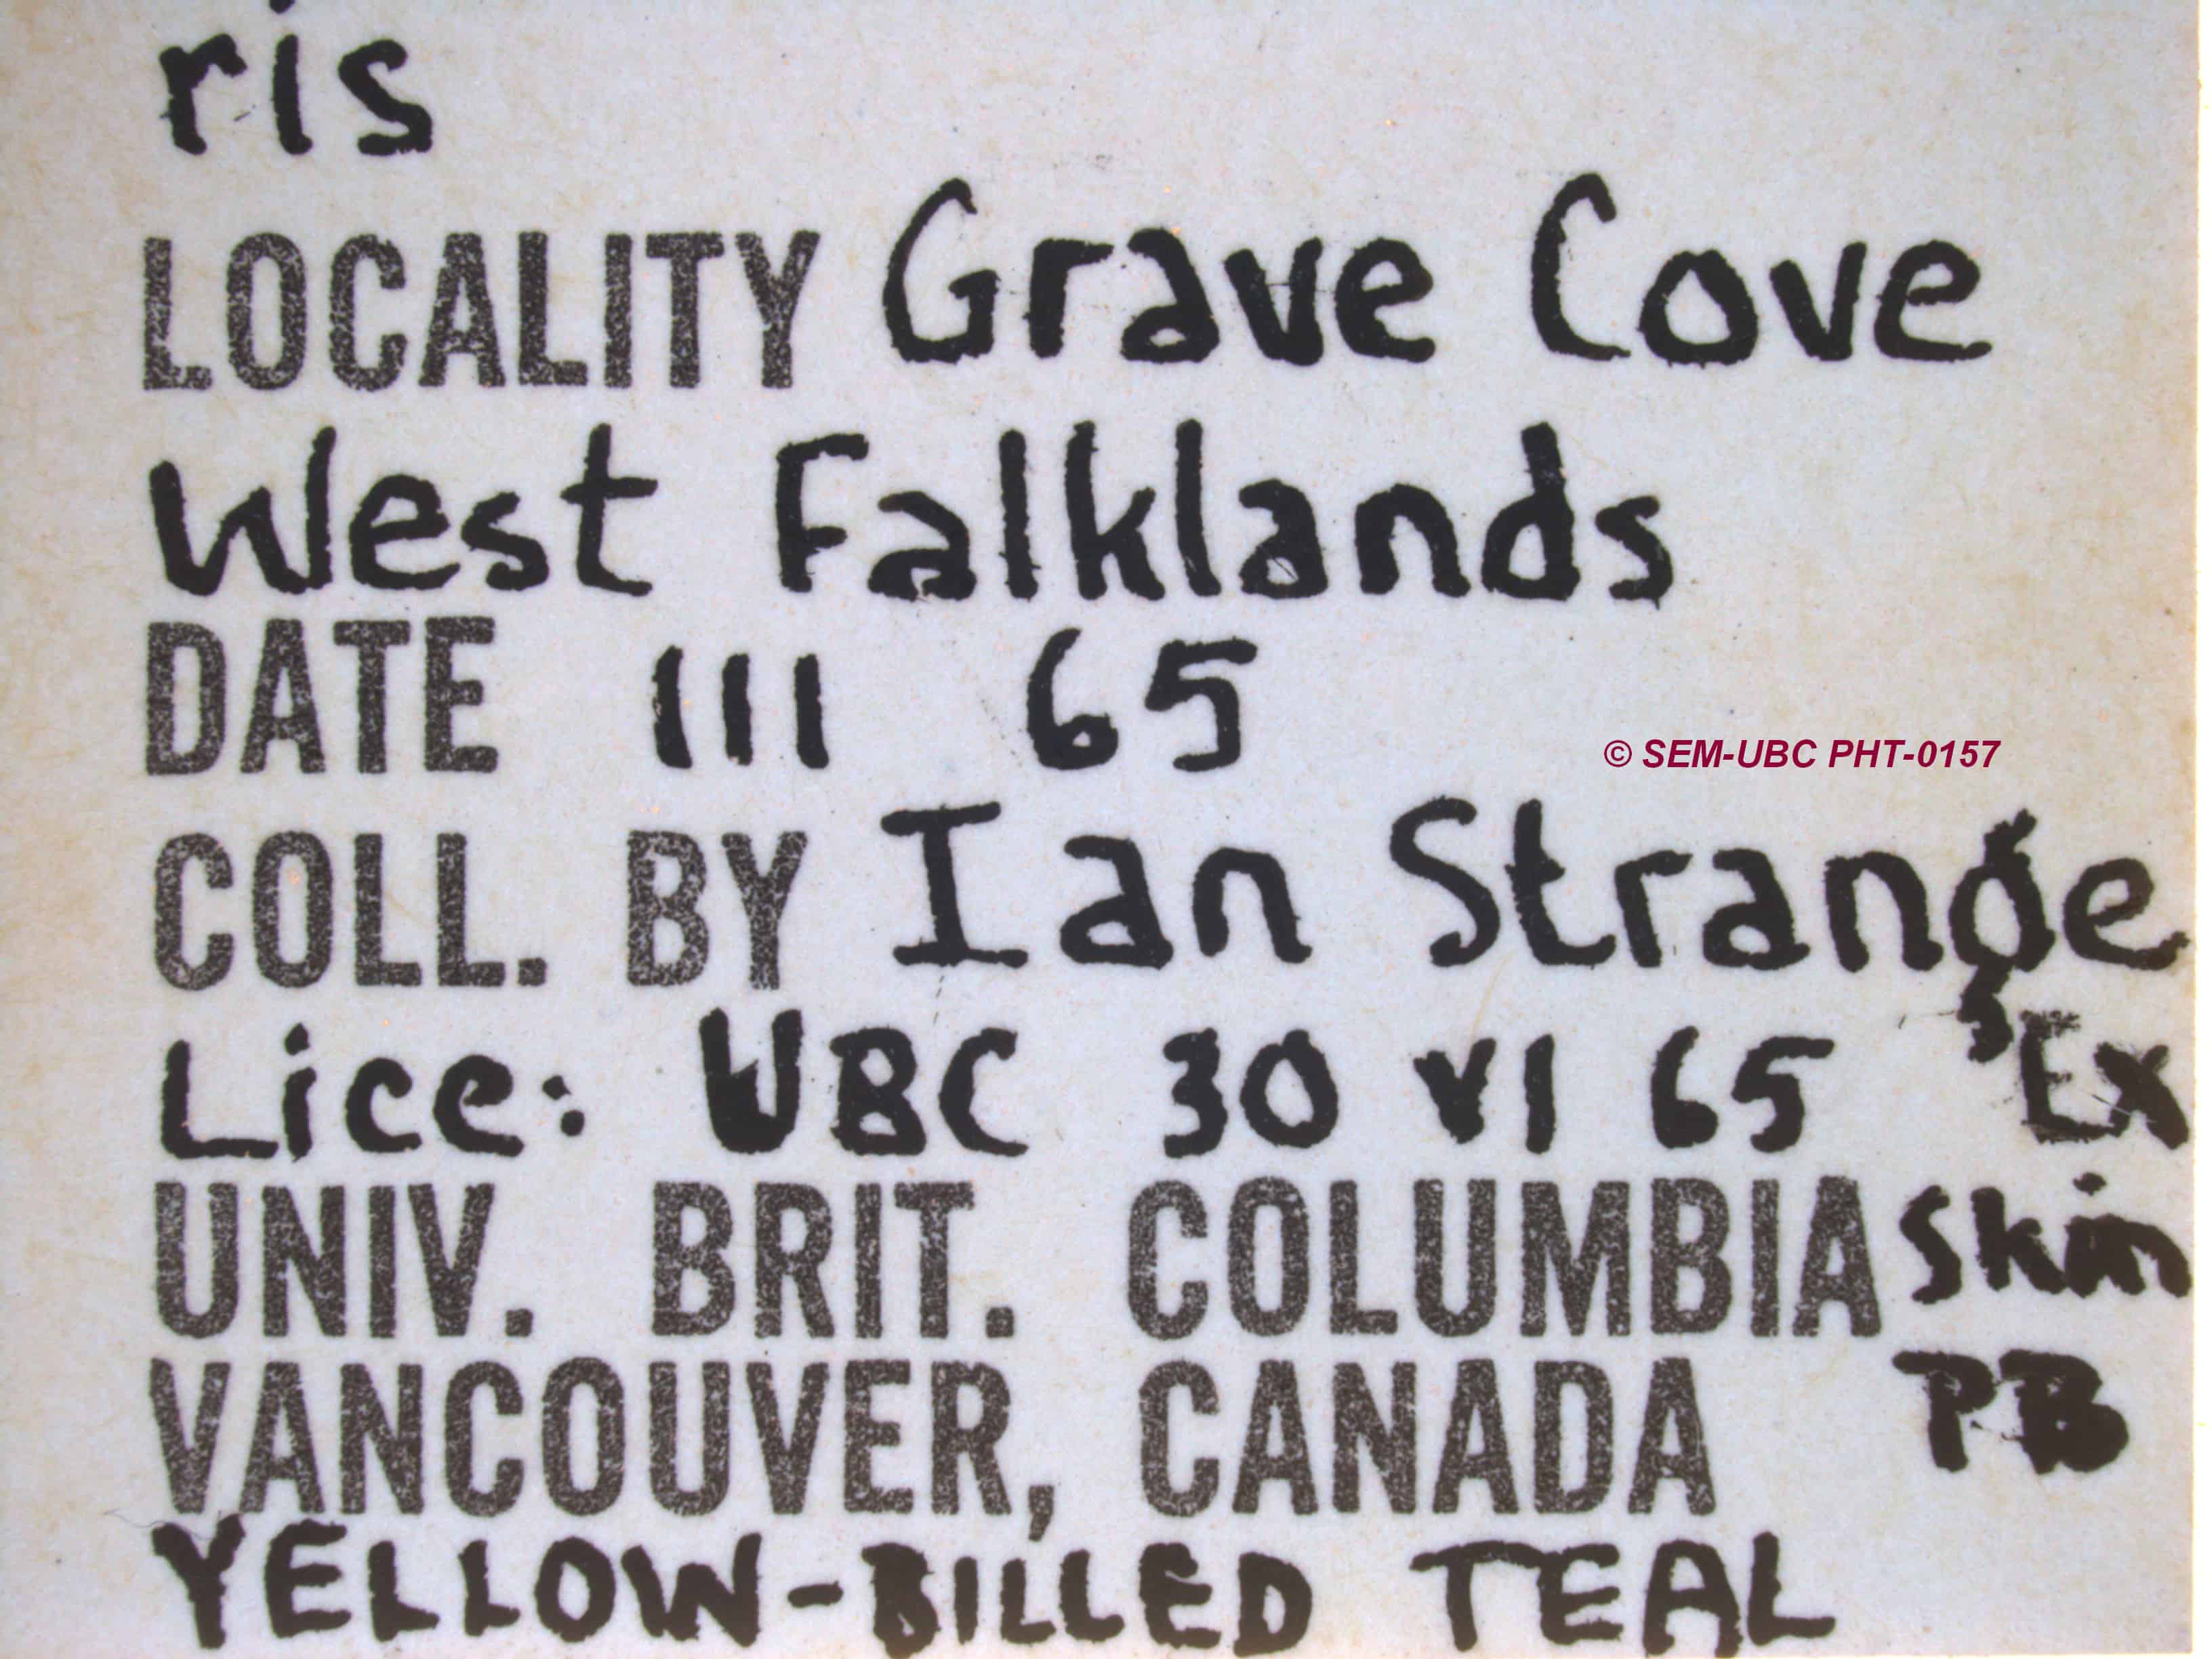 ris
LOCALITY Grave Cove
West Falklands
DATE III 65
© SEM-UBC PHT-0157
COLL. BY Ian Strange
Lice: UBC 30 VI 65 Ex
UNIV. BRIT. COLUMBIA Skin
VANCOUVER, CANADA PB
YELLOW-BILLED TEAL